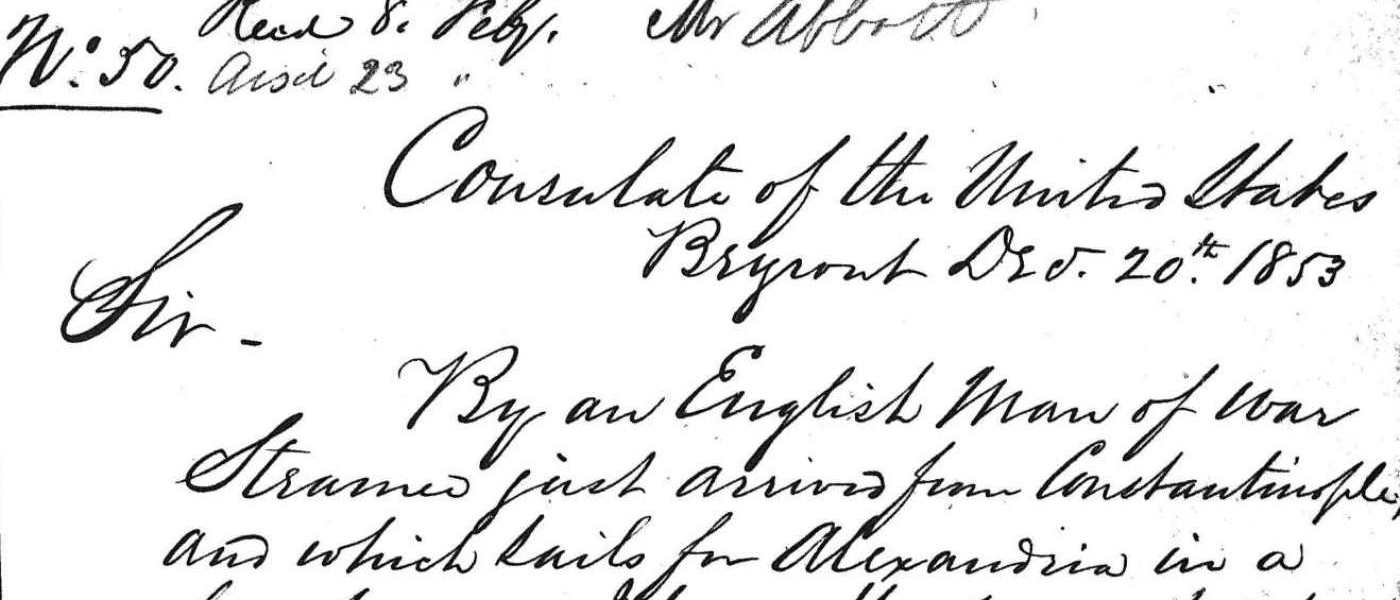 Recd 8. Feby. Mr Abbott
No. 50. Ansd 23 "
Consulate of the United States
Beyrout Dec. 20.th 1853
Sir -
By an English Man of War
Steamer just arrived from Constantinople,
and which sails for Alexandria in a